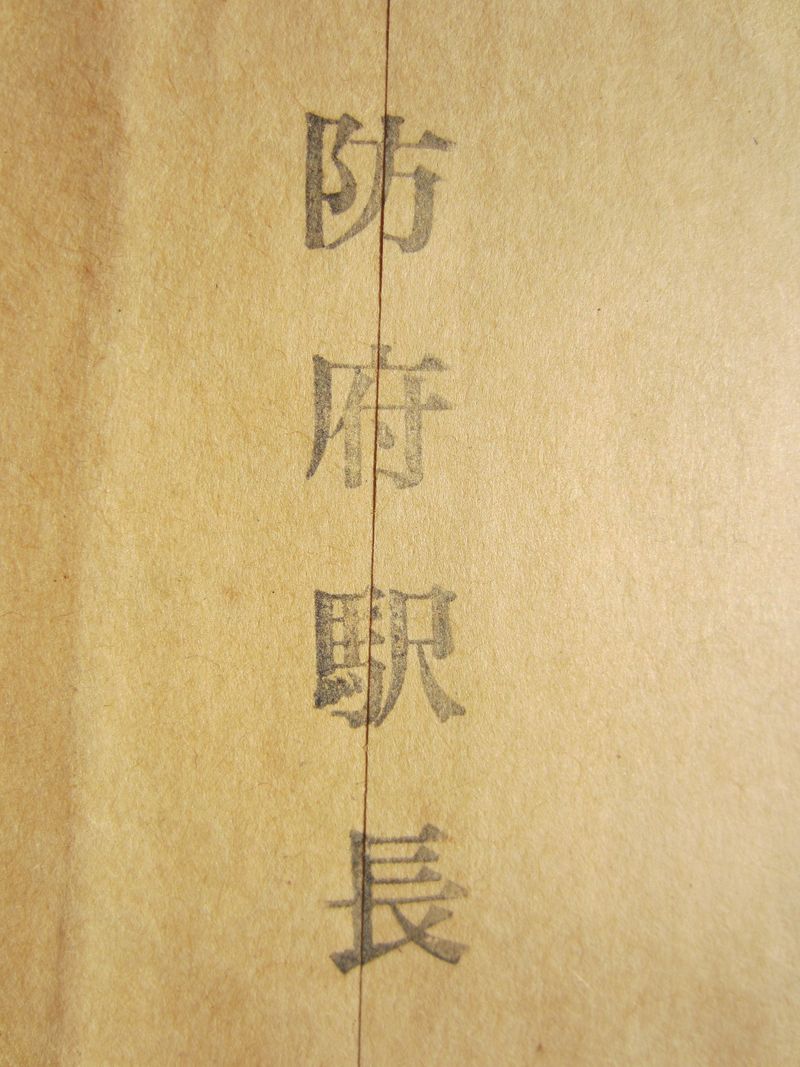 防府駅長